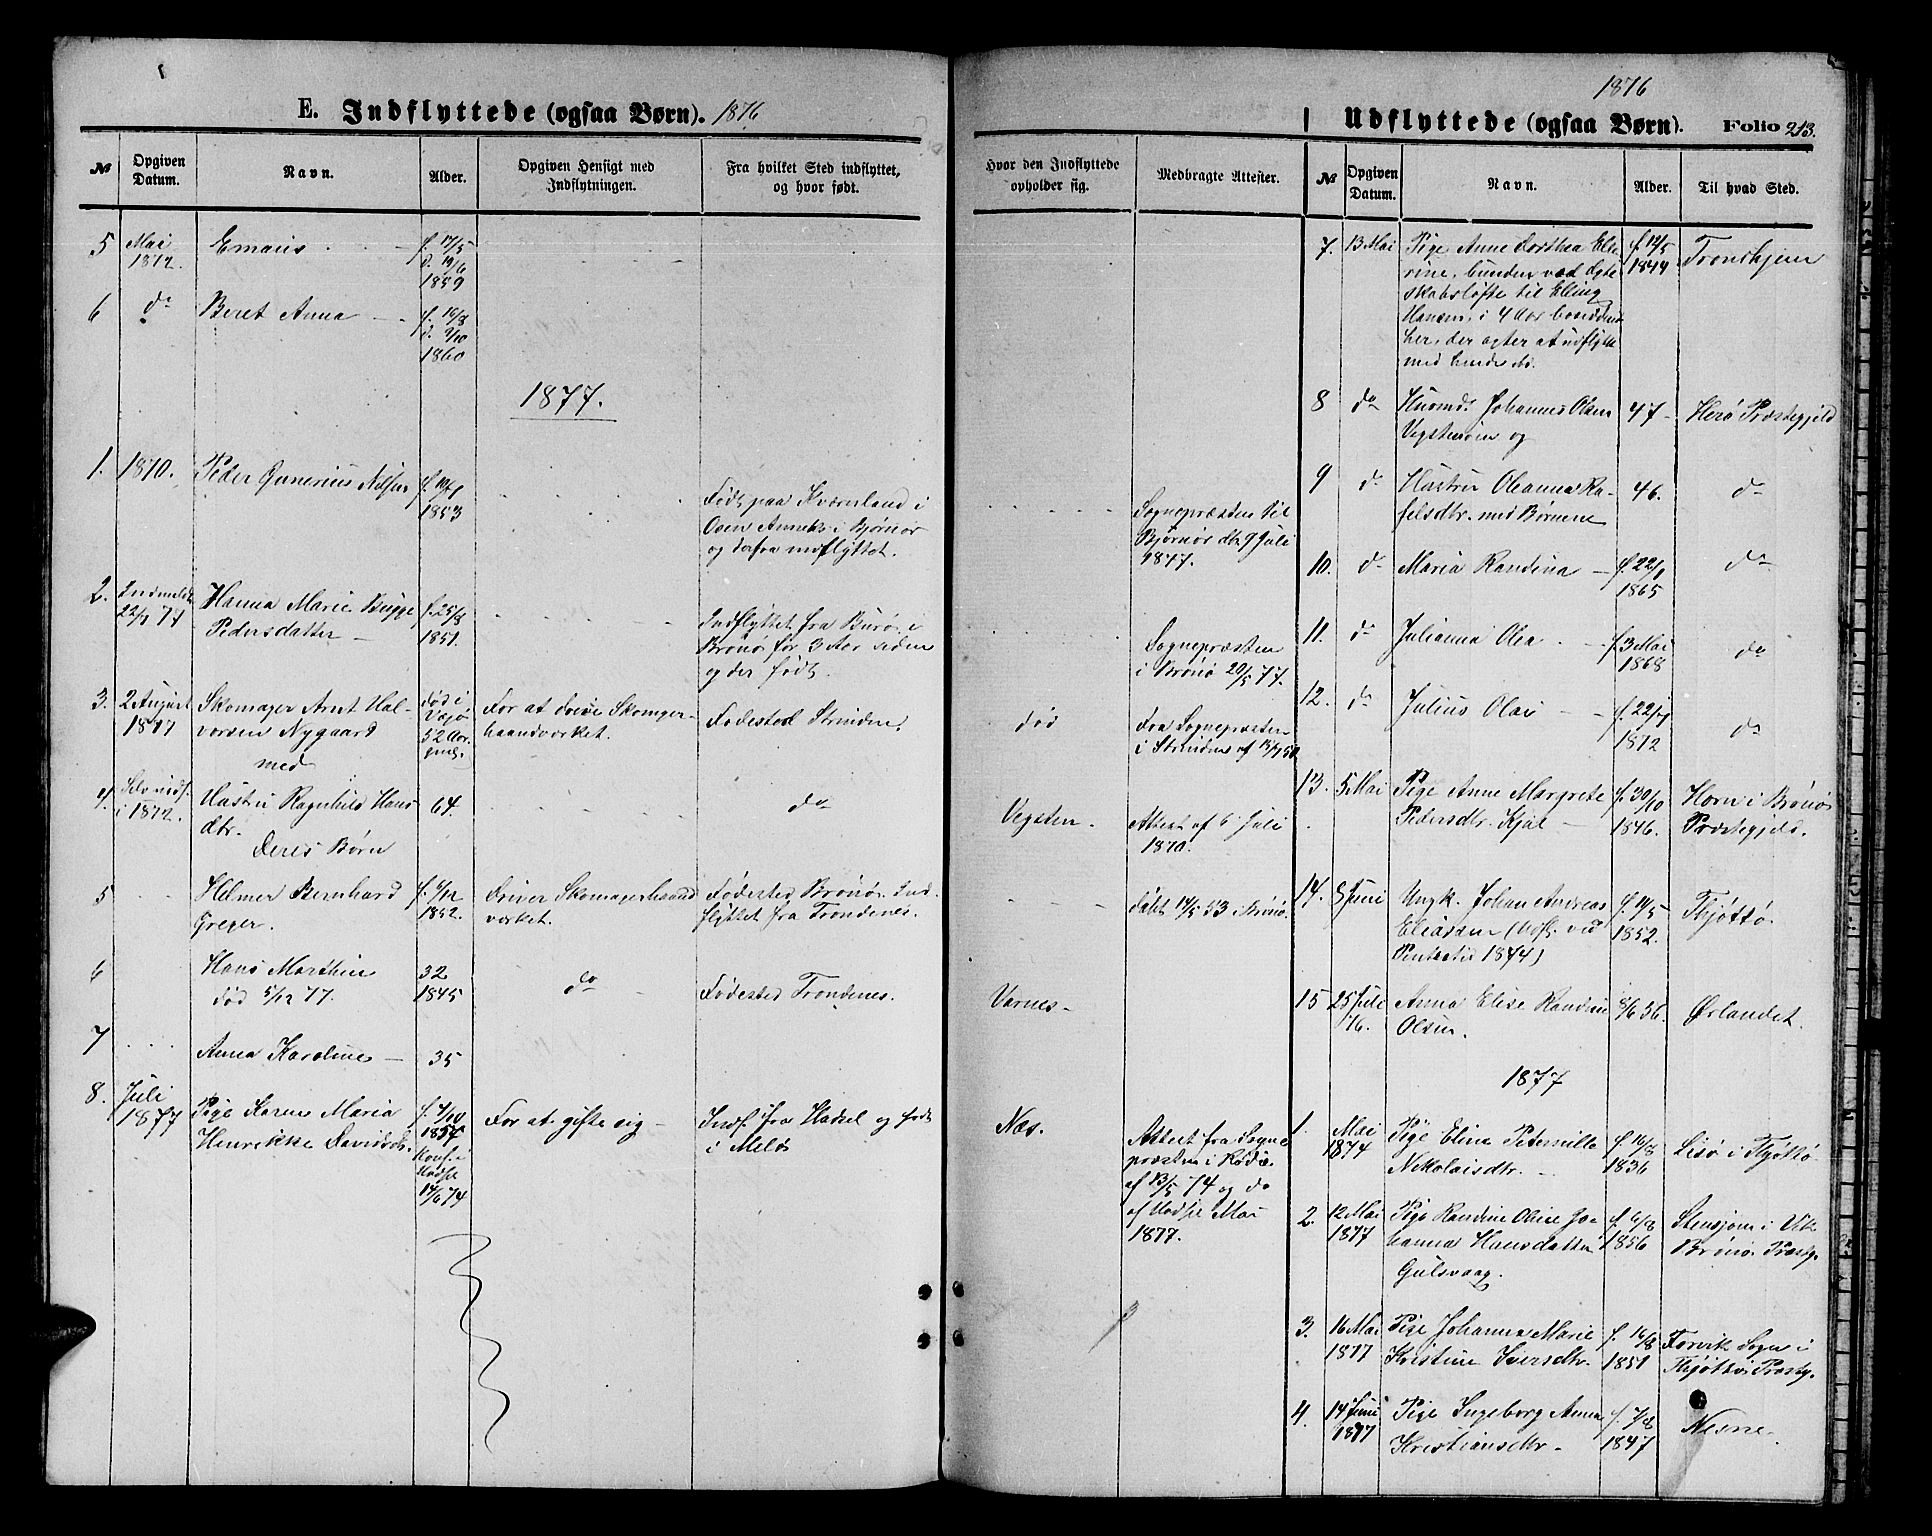 E. Indflyttede (ogsaa Børn). 1876
№
Opgiven
Datum.
Navn.
Alder.
Opgiven Hensigt med
Indflytningen.
Fra hvilket Sted indflyttet,
og hvor født.
5 Mai
1872.
Emaus
f. 17/5
d. 19/6
1859
6 do
Beret Anna
f. 16/8
d. 9/10
1860
1877.
1. 1870. Peder Gunerius Nilsen
1853
Født paa Kværnland i
Osen Annex i Bjørnør
og derfra indflyttet.
2. Indmeldt
22/1 77
Hanna Marie Bugge
Pedersdatter
f. 25/8
1851.
Indflyttet fra Burø i
Brønø for 3 Aar siden
og der født.
3. 2 August
1877
Skomager Arnt Hal-
vorsen Nygaard
med
død i
Vegø
52 Aar
gml.
For at drive Skomger-
haandværket.
Fødested Strinden.
4.
i 1872.
Hustru Ragnhild Hans
dtr.
Deres Børn
64.
do
5
Helmer Bernhard
Greger.
1852.
Driver Skomagerhaand
værket.
Fødested Brønø. Ind-
flyttet fra Trondenes.
6
Hans Marthin
død 5/12 77.
32
1845
do
Fødested Trondenes.
7
Anna Karoline
35
8. Juli
1877
Pige Karen Maria
Henrikke Davidsdtr.
f. 4/10
1857
Konf. i
Hadsel
14/6 74
For at gifte sig
Indf. fra Hadsel og født
i Melø
1876
Udflyttede (ogsaa Børn). Folio 213.
Hvor den Indflyttede
opholder sig.
Medbragte Attester.
№
Opgiven
Datum.
Navn.
Alder.
Til hvad Sted.
Sognepræsten til
Bjørnør dat. 9 Juli
1877.
Sognepræsten
i Brønø 20/5 77.
død
Fra Sognepræsten
i Strinden af
Vegsten.
Attest af 6 Juli
1870.
døbt 14/5 53 i Brønø.
Værnes
Næs.
Attest fra Sogne
præsten i Rødø
af 23/5 74 og do
af Hadsel Mai
1877.
7. 13 Mai
Pige Anne Dorthea Ele-
rine, bunden ved Egte
skabsløfte til Elling
Hansen, i 4 Aar bosiddende
her, der agter at udflytte
med hende do.
f. 12/5
1844
Trondhjem
8 do
Husmd. Johannes Olsen
Vegstenøien og
47
Herø Præstegjeld
9 do
Hustru Oleanna Ra-
felsdtr. med Børnene
46.
do
10. do
Maria Randina
f. 22/1
1865
do
11. do
Julianna Olea
f. 3 Mai
1868
do
12. do
Julius Olai
f. 22/1
1872
do
13. 5 Mai
Pige Anne Margrete
Pedersdtr. Kjul
f. 30/10
1846.
Horn i Brønø
Præstegjeld.
14. 8 Juni
Ungk. Johan Andreas
Eliasen (udfl. ved
Pintsetid 1874)
f. 14/5
1852.
Thjøttø.
15 25 Juli
76.
Anna Elise Randine
Olsen.
8/6 56.
Ørlandet.
1877
1. Mai
1874
Pige Elina Peternille
Nikolaisdtr.
f. 16/8
1836
Lisø i Thjøttø
2. 12 Mai
1877
Pige Randine Oline Jo-
hanna Hansdatter
Gulsvaag.
f. 6/8
1856
Stensjøen i Vik
Brønø Præstg.
3. 16 Mai
1877
Pige Johanna Marie
Kristine Iversdtr.
f. 16/8
1851
Forvik Sogn i
Thjøttø Præstg.
4. 14 Juni
1877
Pige Ingeborg Anna
Kristiansdtr.
f. 7/8
1847
Nesne.